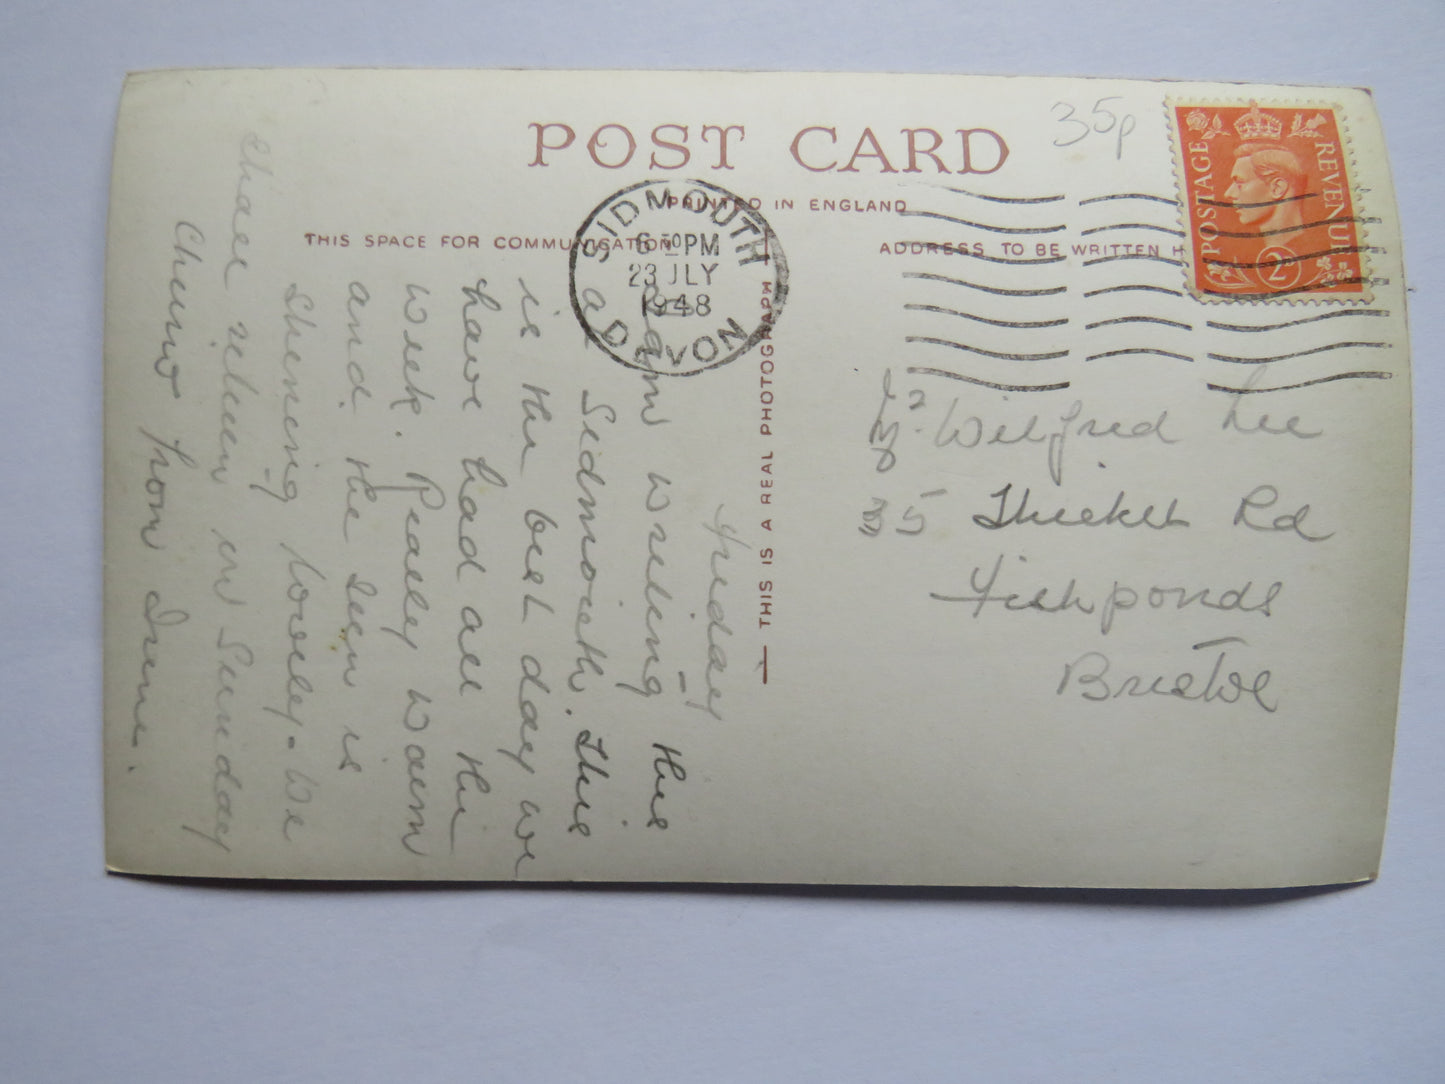 POST CARD
35p
PRINTED IN ENGLAND
THIS SPACE FOR COMMUNICATION
ADDRESS TO BE WRITTEN H
THIS IS A REAL PHOTOGRAPH
POSTAGE REVENUE
2D
SIDMOUTH
6 30 PM
23 JLY
1948
DEVON
Wilfred Lee
35 Thicket Rd
Fishponds
Bristol
Friday
am writing this
at Sidmouth. This
is the best day we
have had all the
week. Really warm
and the sun is
shining lovely. We
shall return on Sunday
Cheerio from Irene.